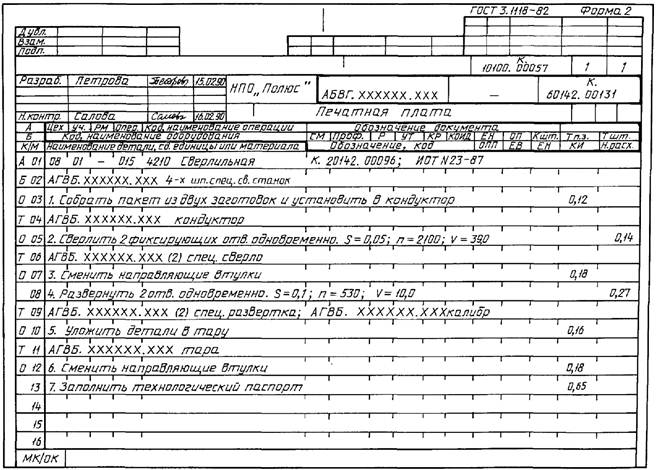 ГОСТ 3.1118-82 Форма 2
Дубл.
Взам.
Подл.
К.
10100.00057 1 1
Разраб. Петрова 15.02.90 НПО „Полюс" АБВГ.XXXXXX.XXX — К. 60142.00131
Н.контр. Салова 16.02.90 Печатная плата
А Цех Уч. РМ Опер. Код, наименование операции Обозначение документа
Б Код, наименование оборудования СМ Проф. Р УТ КР КОИД ЕН ОП Кшт. Тп.з. Тшт.
К/М Наименование детали, сб. единицы или материала Обозначение, код ОПП ЕВ ЕН КИ Н.расх.
А 01 08 01 — 015 4210 Сверлильная К. 20142.00096; ИОТ N23-87
Б 02 АГВБ.XXXXXX.XXX 4-х шп.спец.св.станок
О 03 1. Собрать пакет из двух заготовок и установить в кондуктор 0,12
Т 04 АГВБ.XXXXXX.XXX кондуктор
О 05 2. Сверлить 2 фиксирующих отв. одновременно. S=0,05; n=2100; V=39,0 0,14
Т 06 АГВБ.XXXXXX.XXX (2) спец. сверло
О 07 3. Сменить направляющие втулки 0,18
08 4. Развернуть 2 отв. одновременно. S=0,1; n=530; V=10,0 0,27
Т 09 АГВБ.XXXXXX.XXX (2) спец. развертка; АГВБ.XXXXXX.XXX калибр
О 10 5. Уложить детали в тару 0,16
Т 11 АГВБ.XXXXXX.XXX тара
О 12 6. Сменить направляющие втулки 0,18
13 7. Заполнить технологический паспорт 0,65
14
15
16
МК/ОК